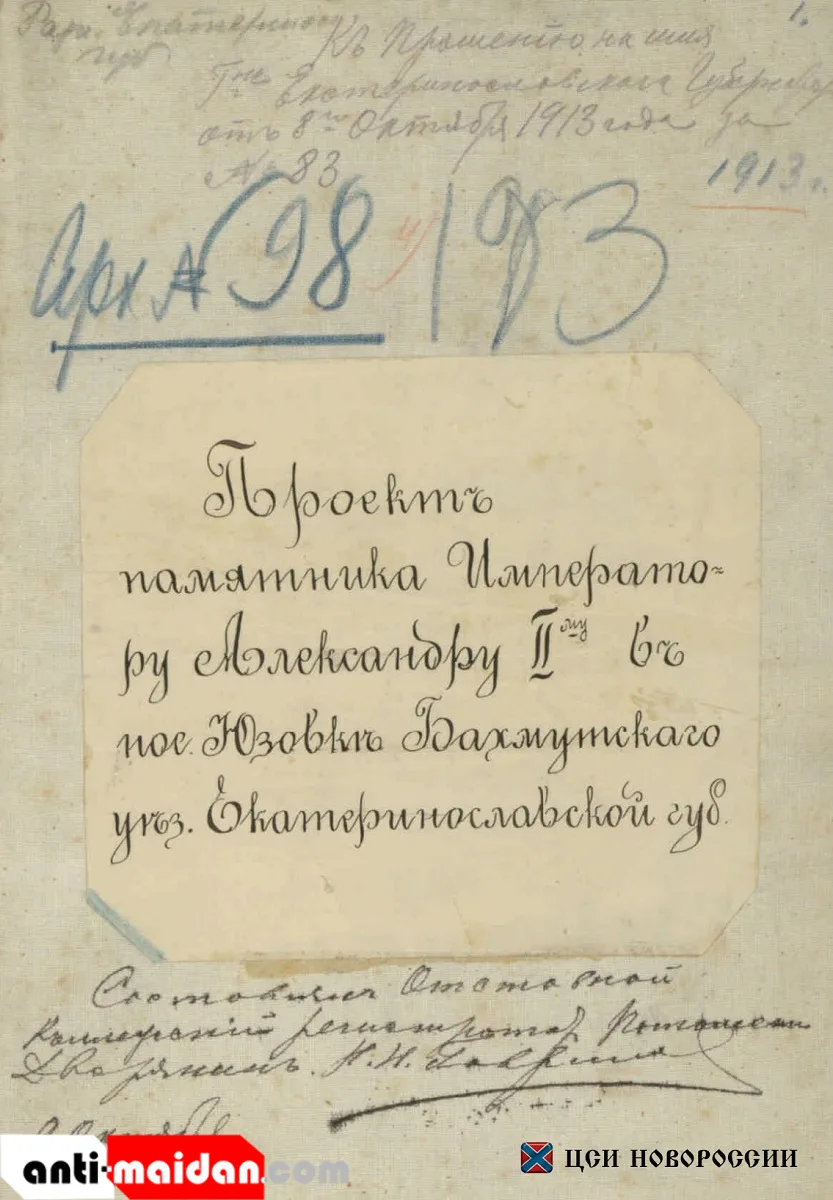 1.
Къ Прошенію на имя
Екатеринославскаго Губернатора
отъ 8го Октября 1913 года за
№ 83
1913 г.
Арх № 98
193
Проектъ
памятника Императо-
ру Александру IIму въ
пос. Юзовкѣ Бахмутскаго
уѣз. Екатеринославской губ.
Составилъ Отставной
Коллежскій регистраторъ
Дворянинъ. Н. Н.
anti-maidan.com
ЦСИ НОВОРОССИИ